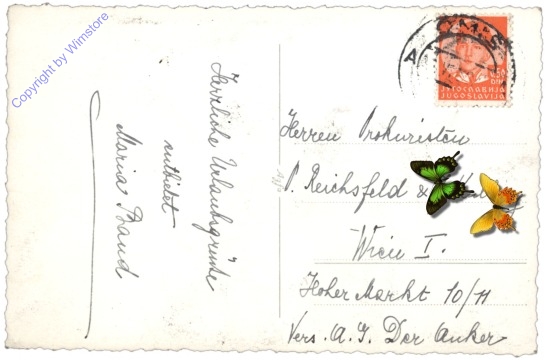 Copyright by Wimstore
Herrliche Urlaubsgrüße
entbietet
Maria Band
ЈУГОСЛАВИЈА
JUGOSLAVIJA
Herren Prokuristen
P. Reichsfeld &
Wien I.
Hoher Markt 10/11
Vers. A. G. Der Anker